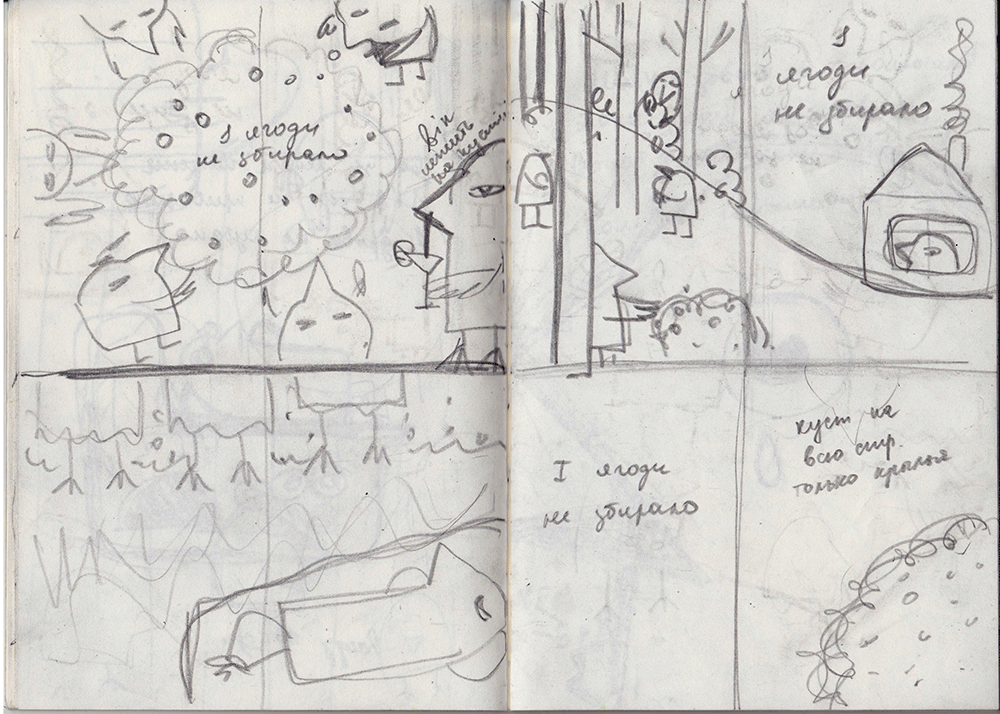 І ягоди
не збирало
він
летить
І
ягоди
не збирало
І ягоди
не збирало
куст на
всю стр.
только крылья